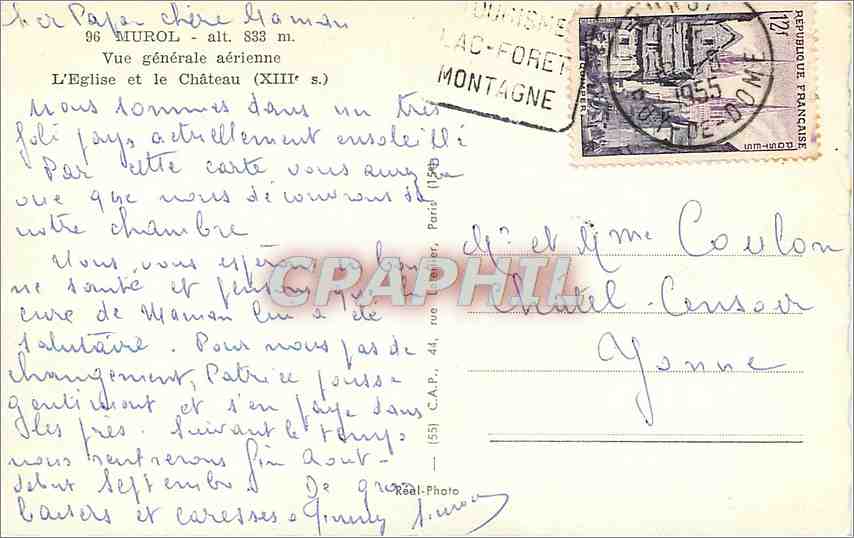 cher Papa chère Maman
96 MUROL - alt. 833 m.
Vue générale aérienne
L'Eglise et le Château (XIIIe s.)
Nous sommes dans un très
joli pays actuellement ensoleillé
Par cette carte vous aurez la
vue que nous découvrons de
notre chambre
Nous vous espérons en bon
ne santé et pensons que la
cure de Maman lui a été
salutaire. Pour nous pas de
changement, Patrice pousse
gentiment et s'en paye dans
les prés. Suivant le temps
nous rentrerons fin Aout-
début Septembre. De gros
baisers et caresses
TOURISME
LAC-FORET
MONTAGNE
1955
PUY-DE-DOME
12F
REPUBLIQUE FRANCAISE
POSTES
QUIMPER
Mr et Mme Coulon
Chatel-Censoir
Yonne
(55) C.A.P., 44, rue Letellier, Paris (15e)
Réel-Photo
CPRAPHIL